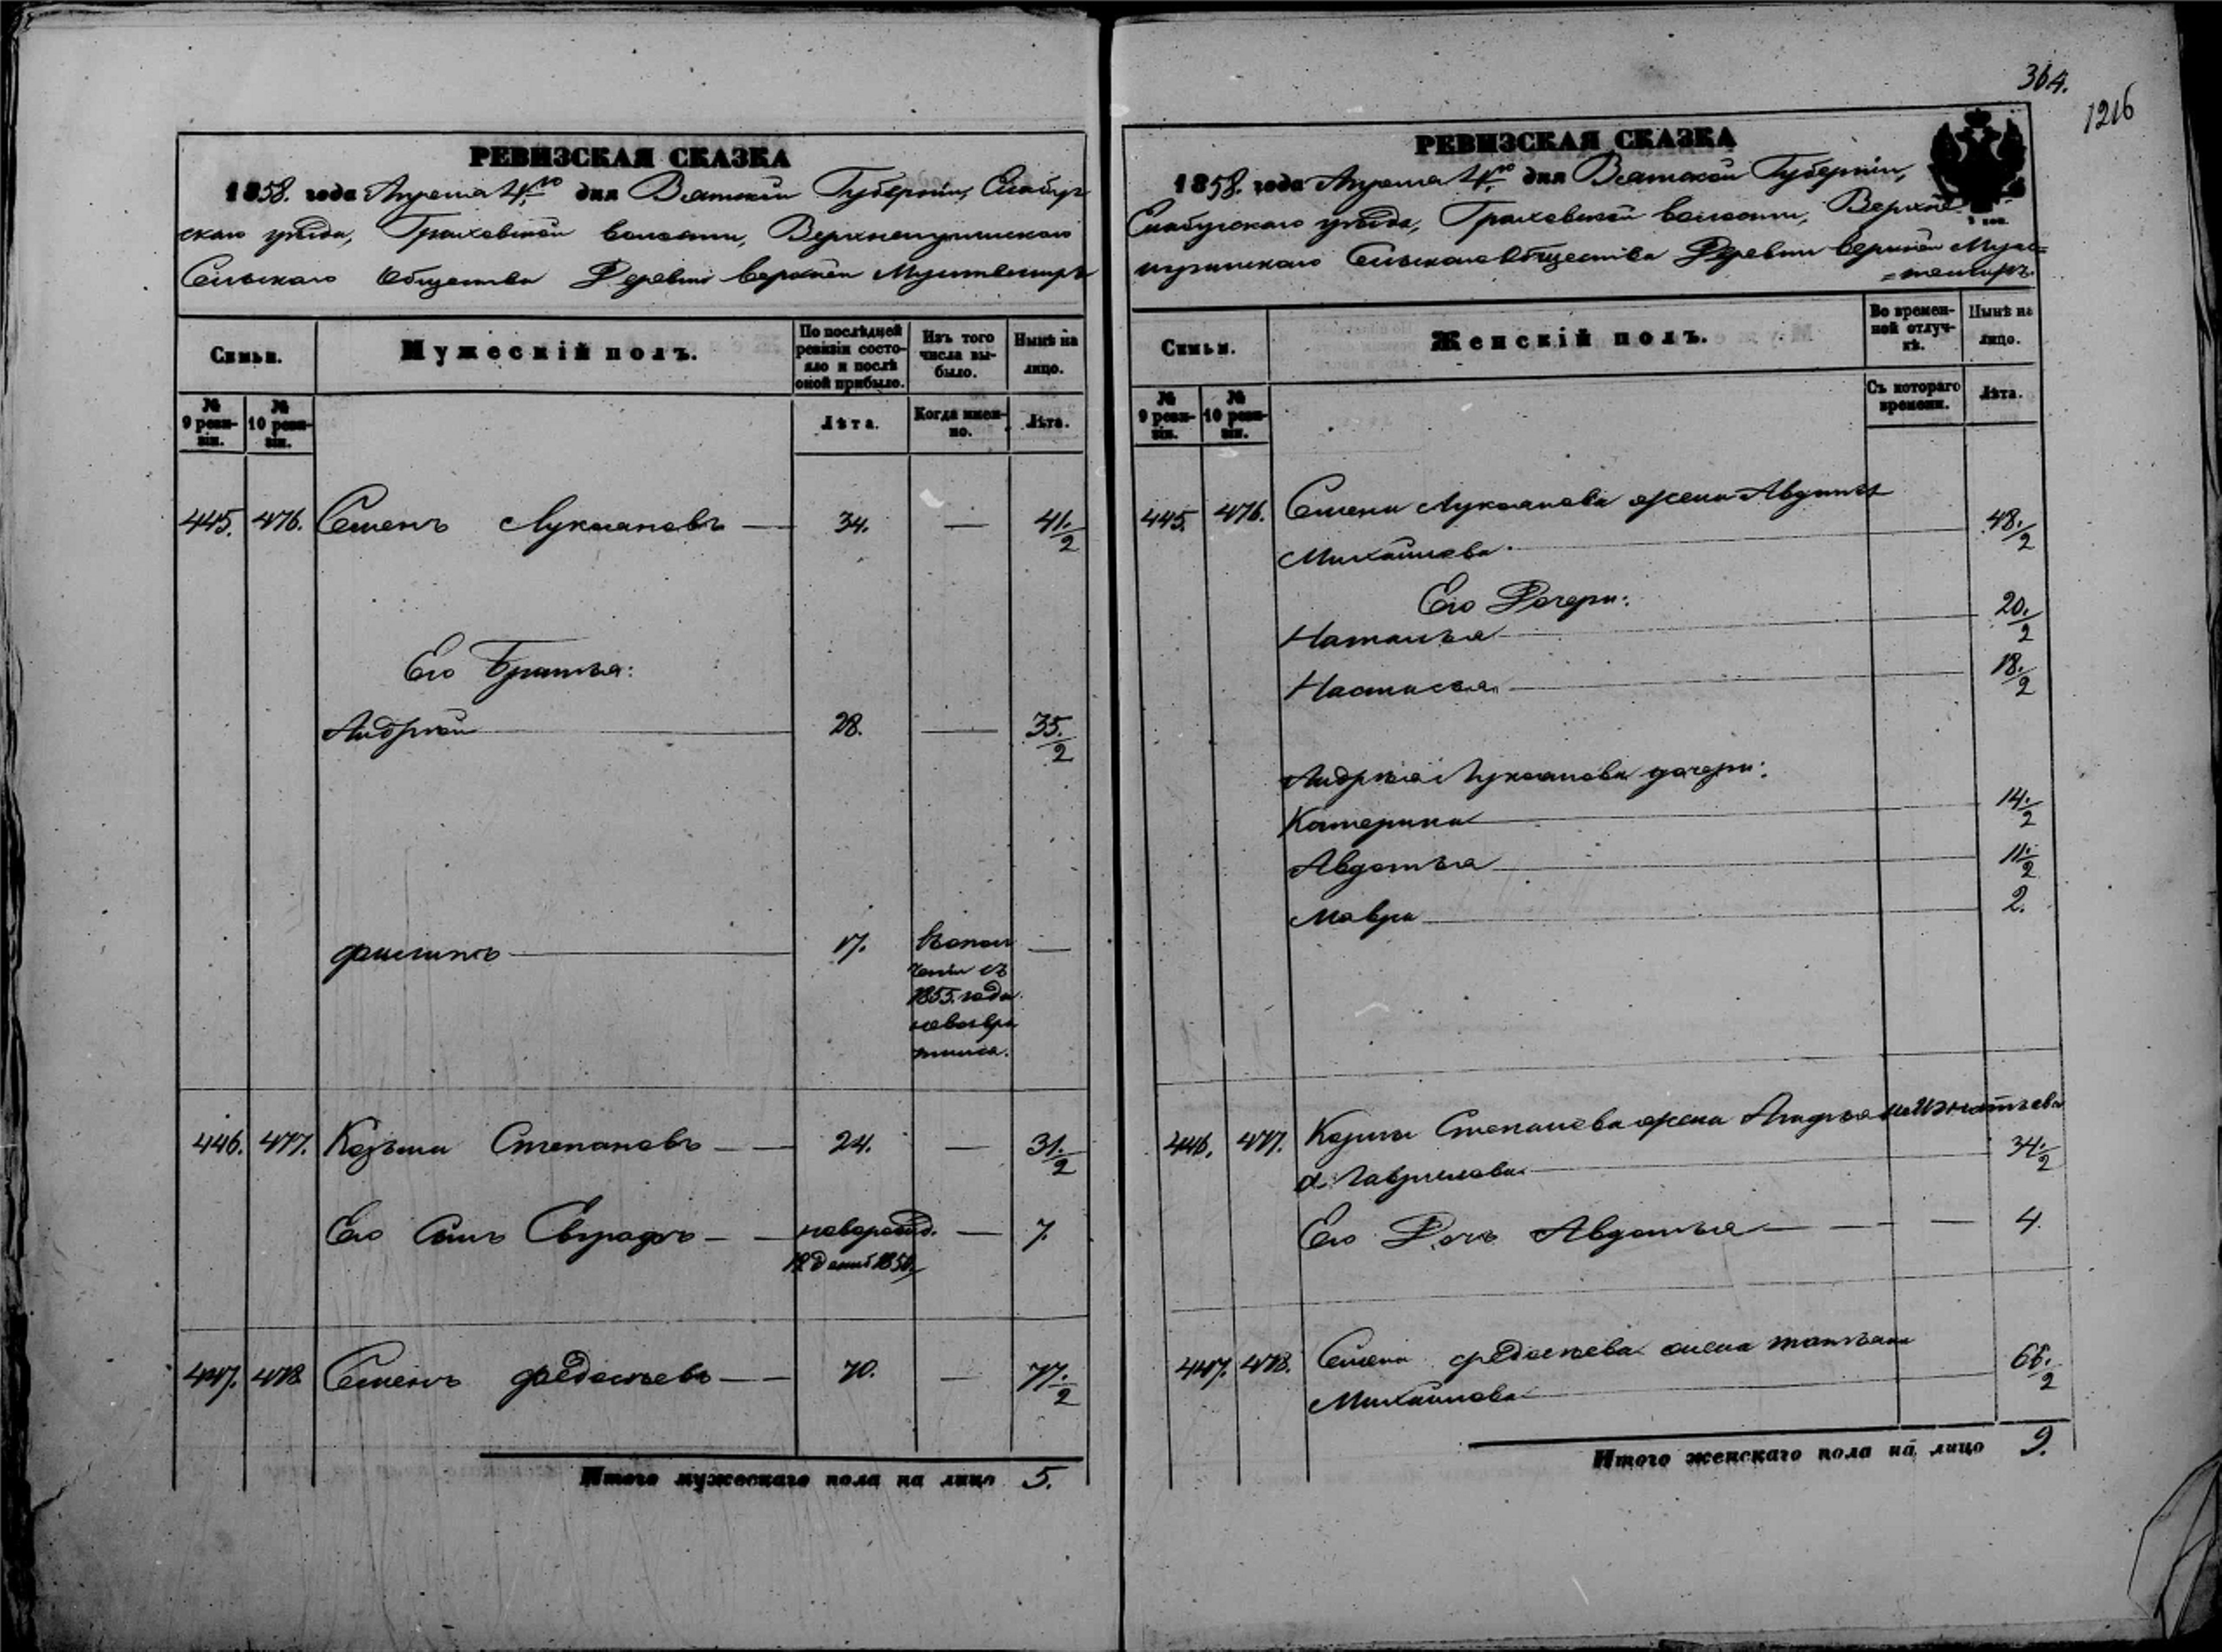 364.
1216
РЕВИЗСКАЯ СКАЗКА
1858. года Апреля 4го дня Вятской Губернии, Елабуж
скаго уѣзда, Граховской волости,
Сельскаго Общества Деревни верхней
Семьи.
Мужескій полъ.
По послѣдней ревизіи состояло и послѣ оной прибыло.
Изъ того числа выбыло.
Нынѣ на лицо.
№ 9 ревизіи.
№ 10 ревизіи.
Лѣта.
Когда именно.
Лѣта.
445. 476. Семенъ Лукояновъ — 34. — 41./2
Его Братья:
Андрей 28. — 35./2
Филипъ 17. —
1855. года
невозвра
тился.
446. 477. Козьма Степановъ — — 24. — 31./2
Его Сынъ Евграфъ — — новорожд. — 7.
1850.
447. 478 Семенъ Федосѣевъ — — 70. — 77./2
Итого мужескаго пола на лицо 5.
РЕВИЗСКАЯ СКАЗКА
1858. года Апреля 4го дня Вятской Губерніи,
Елабугскаго уѣзда, Граховской волости, Верхне
Сельскаго Общества Деревни верхней
Семьи.
Женскій полъ.
Во временной отлучкѣ.
Нынѣ на лицо.
№ 9 ревизіи.
№ 10 ревизіи.
Съ котораго времени.
Лѣта.
445. 476. Семена Лукоянова жена Авдотья
Михайлова 48./2
Его Дочери:
Наталья 20./2
Настасья 18./2
Андрея Лукоянова дочери:
Катерина 14./2
Авдотья 11./2
Мавра 2.
446. 477. Козмы Степанова жена
Гаврилова 34./2
Его Дочь Авдотья — — — 4.
447. 478. Семена Федосѣева жена
Михайлова
Итого женскаго пола на лицо 9.